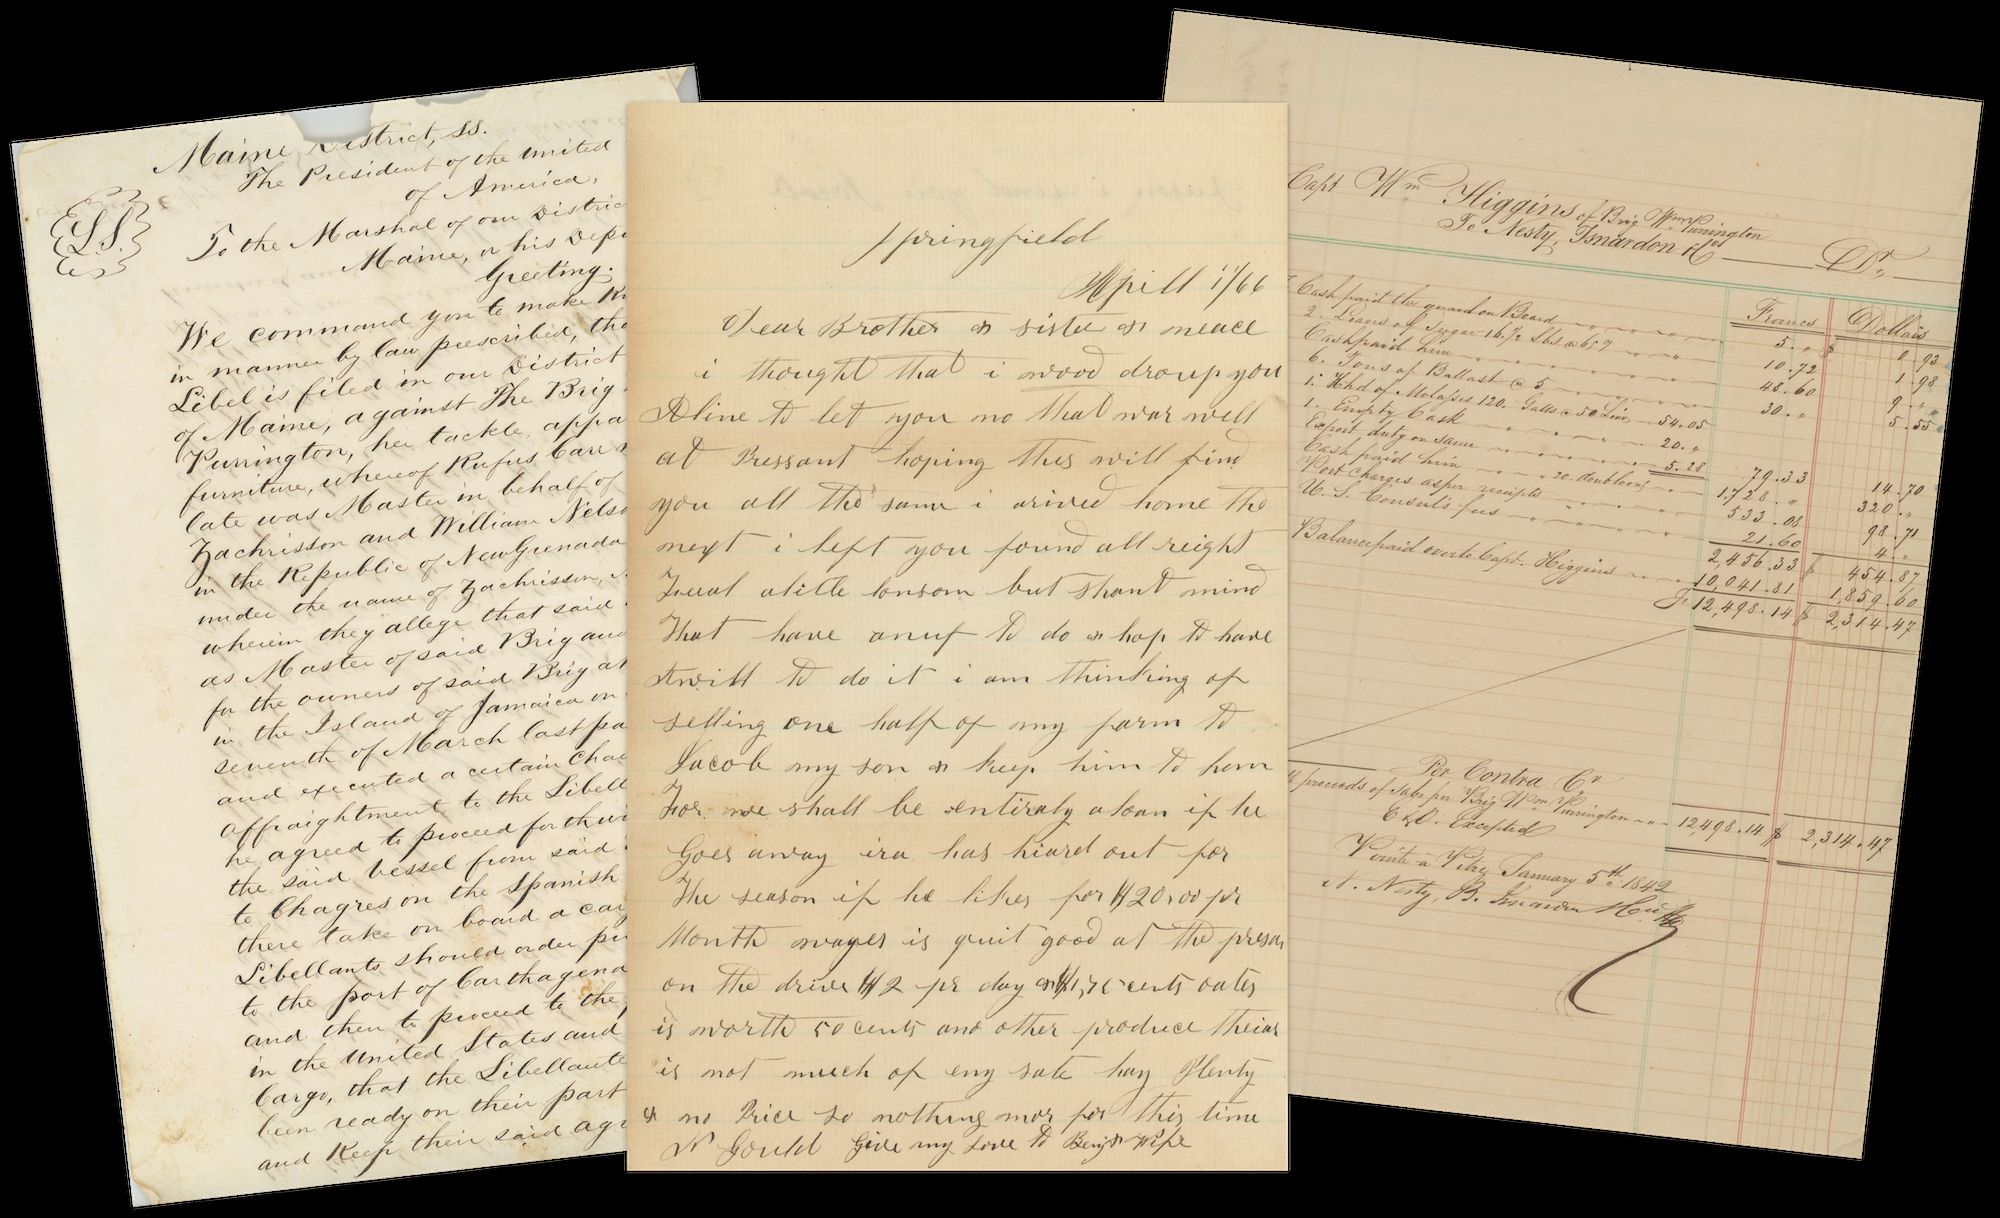 Maine District, ss.
The President of the United
of America,
L.S.
To the Marshal of our District
Maine, or his Depu
Greeting.
We command you to make Kn
in manner by law prescribed, tha
Libel is filed in our District
of Maine, against The Brig
Purrington, her tackle, appa
furniture, whereof Rufus Carr
late was Master in behalf of
Zachrisson and William Nelso
in the Republic of New Grenada
under the name of Zachrisson, N
wherein they allege that said
as Master of said Brig and
for the owners of said Brig at
in the Island of Jamaica on
seventh of March last pa
and executed a certain Cha
affraightment to the Libell
he agreed to proceed forthwi
the said vessel from said
to Chagres on the Spanish
there take on board a car
Libellants should order pu
to the port of Carthagena
and then to proceed to the
in the United States and
Cargo, that the Libellants
been ready on their part
and Keep their said agr
Springfield
Aprill 1/66
Dear Brother & sister & neace
i thought that i wood droup you
A line to let you no that war well
at Pressant hoping thes will find
you all the same i arived home the
next i left you found all reight
a little lonsom but shant mind
That have anuf to do & hop to have
Awill to do it i am thinking of
selling one half of my farm to
Jacob my son & keep him to hom
For we shall be entiraly aloan if he
Goes away ira has hiard out for
The season if he likes for $20,00 pr
Month wages is quit good at the presan
on the drive $2 pr day & $1,75 cents oates
is worth 50 cents and other produce theiar
is not much of eny sale hay Plenty
& no Price so nothing mor for this time
N Gould Give my Love to Benj & Wife
Capt Wm Higgins of Brig Wm Purrington
To Nesty, Isnardon & Co Dr.
Francs Dollars
Cash paid the guard on Board 5. " $ 0.93
2. Loaves of Sugar 16 1/2 Lbs @ 65 10.72 1.98
Cash paid him 48.60 9. "
6. Tons of Ballast @ 5 30. " 5.55
1. Hhd of Molasses 120. Galls @ 50 54.05
1. Empty Cask 20. "
Export duty on same 5.28 79.33 14.70
Cash paid him 20. doubloons 1,728. " 320. "
Port Charges as per receipts 533.08 98.71
U. S. Consul's fees 21.60 4. "
2,456.33 $ 454.87
Balance paid over to Capt. Higgins 10,041.81 1,859.60
F. 12,498.14 $ 2,314.47
Per Contra Cr
proceeds of Sales per Brig Wm Purrington 12498.14 $ 2,314.47
E & O. Excepted
Pointe a Pitre January 5th 1842
N. Nesty, B. Isnardon